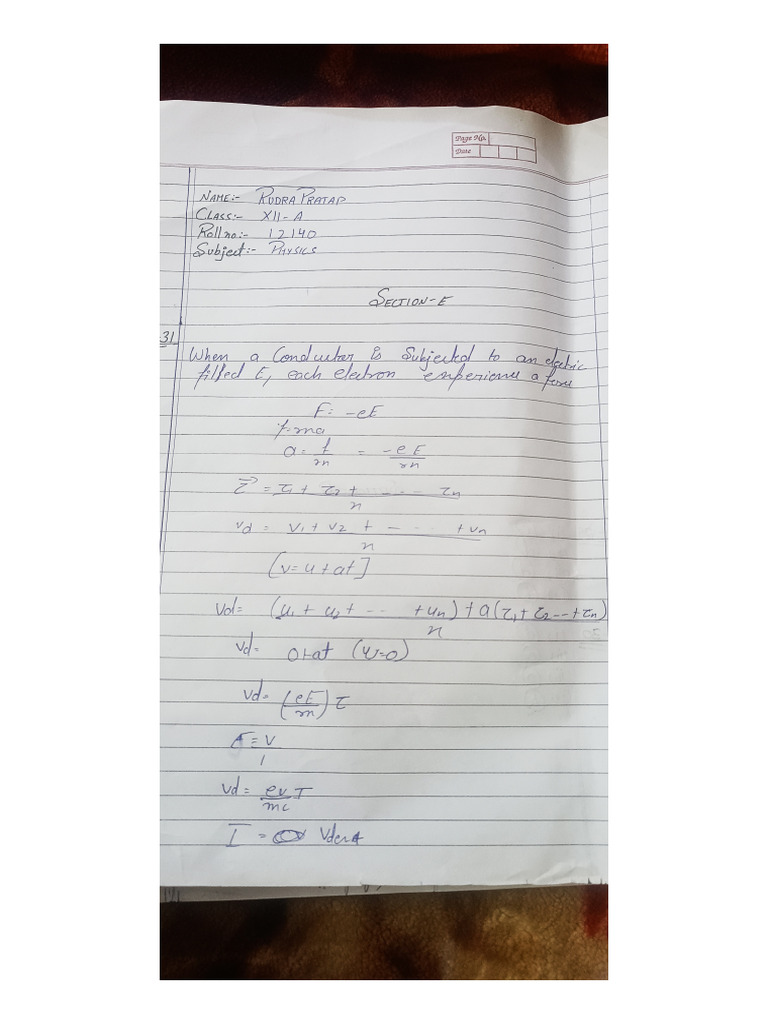 Page No.
Date
NAME:- RUDRA PRATAP
CLASS:- XII-A
Roll no:- 12140
Subject:- PHYSICS
SECTION-E
31
When a Conductor is Subjected to an electric
filled E, each electron experience a force
F= -eE
f=ma
a= f/m = -eE/m
τ = τ1 + τ2 + ----- τn / n
vd = v1 + v2 + - --- + vn / n
[v=u+at]
Vd= (u1 + u2 + -- +un) + a(τ1+ τ2 --+ τn) / n
vd= 0+at (u=0)
Vd= (eE/m) τ
E = V/l
Vd = ev/ml τ
I = VdenA